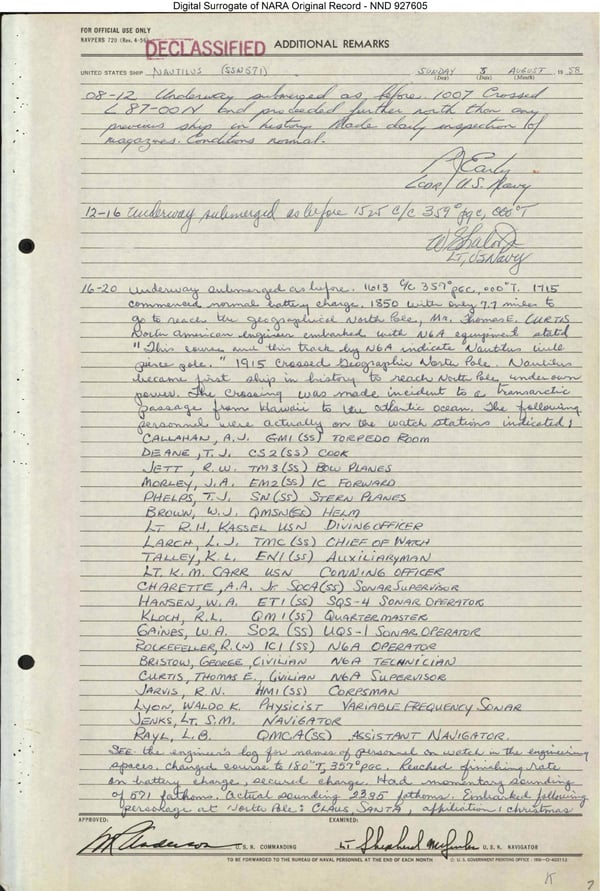 Digital Surrogate of NARA Original Record - NND 927605
FOR OFFICIAL USE ONLY
NAVPERS 720 (Rev. 4-56)
DECLASSIFIED ADDITIONAL REMARKS
UNITED STATES SHIP NAUTILUS (SSN571) SUNDAY 3 AUGUST 1958
(Day) (Date) (Month)
08-12 Underway submerged as before. 1007 Crossed
L 87-00N and proceeded further north than any
previous ship in history. Made daily inspection of
magazines. Conditions normal.
Early
LCDR U.S. Navy
12-16 Underway submerged as before 1525 c/c 359° pgc, 000°T
LT, US Navy
16-20 Underway submerged as before. 1613 c/c 357° PGC, 000°T. 1715
commenced normal battery charge. 1850 with only 7.7 miles to
go to reach the geographical North Pole, Mr. Thomas E. CURTIS
North American engineer embarked with N6A equipment stated
"This course and this track by N6A indicate Nautilus will
pierce pole." 1915 Crossed Geographic North Pole. Nautilus
became first ship in history to reach North Pole under own
power. The crossing was made incident to a transarctic
passage from Hawaii to the Atlantic ocean. The following
personnel were actually on the watch stations indicated:
CALLAHAN, A.J. GM1(SS) TORPEDO ROOM
DEANE, T.J. CS2(SS) COOK
JETT, R.W. TM3(SS) BOW PLANES
MORLEY, J.A. EM2(SS) IC FORWARD
PHELPS, T.J. SN(SS) STERN PLANES
BROWN, W.J. QMSN(SS) HELM
LT R.H. KASSEL USN DIVING OFFICER
LARCH, L.J. TMC(SS) CHIEF OF WATCH
TALLEY, K.L. EN1(SS) AUXILIARYMAN
LT. K.M. CARR USN CONNING OFFICER
CHARETTE, A.A. Jr SOCA(SS) SONAR SUPERVISOR
HANSEN, W.A. ET1(SS) SQS-4 SONAR OPERATOR
KLOCH, R.L. QM1(SS) QUARTERMASTER
GAINES, W.A. SO2(SS) UQS-1 SONAR OPERATOR
ROCKEFELLER, R.(N) IC1(SS) N6A OPERATOR
BRISTOW, GEORGE, CIVILIAN N6A TECHNICIAN
CURTIS, THOMAS E., CIVILIAN N6A SUPERVISOR
JARVIS, R.N. HM1(SS) CORPSMAN
LYON, WALDO K. PHYSICIST VARIABLE FREQUENCY SONAR
JENKS, LT. S.M. NAVIGATOR
RAYL, L.B. QMCA(SS) ASSISTANT NAVIGATOR.
SEE the engineer's log for names of personnel on watch in the engineering
spaces. Changed course to 180°T, 357°pgc. Reached finishing rate
on battery charge, secured charge. Had momentary sounding
of 571 fathoms. Actual sounding 2235 fathoms. Embarked following
personage at North Pole: CLAUS, SANTA, affiliation: Christmas
APPROVED: EXAMINED:
W R Anderson U. S. N. COMMANDING LT Shepherd M Jenks U. S. N. NAVIGATOR
TO BE FORWARDED TO THE BUREAU OF NAVAL PERSONNEL AT THE END OF EACH MONTH
K